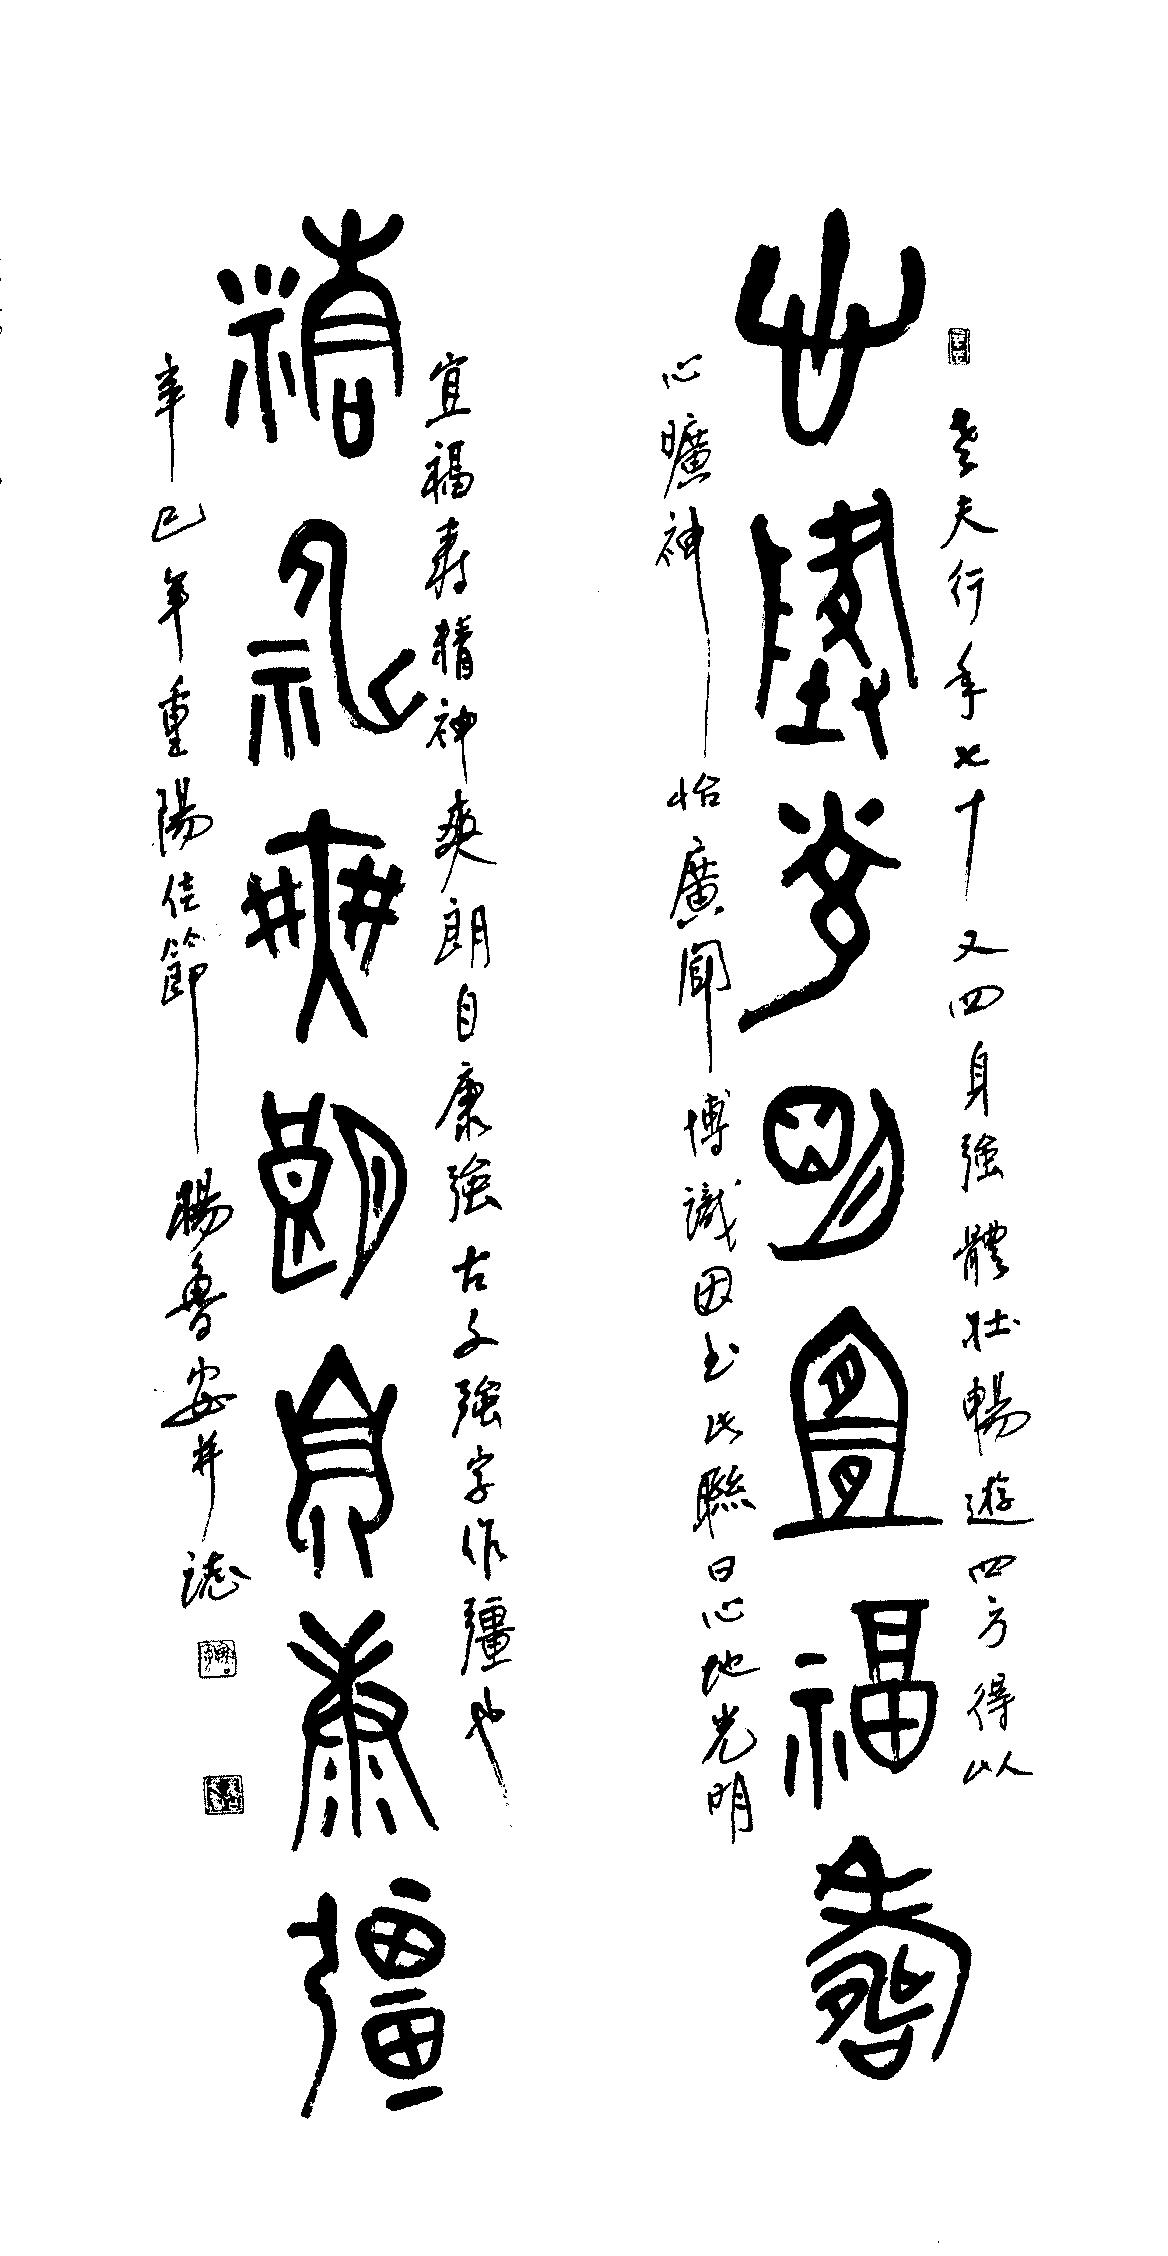 心地光明宜福壽
老夫行年七十又四身強體壯暢遊四方得以
心曠神怡廣聞博識因書此聯曰心地光明
精神爽朗自康彊
宜福壽精神爽朗自康強古文強字作彊也
辛巳年重陽佳節暘魯安并誌